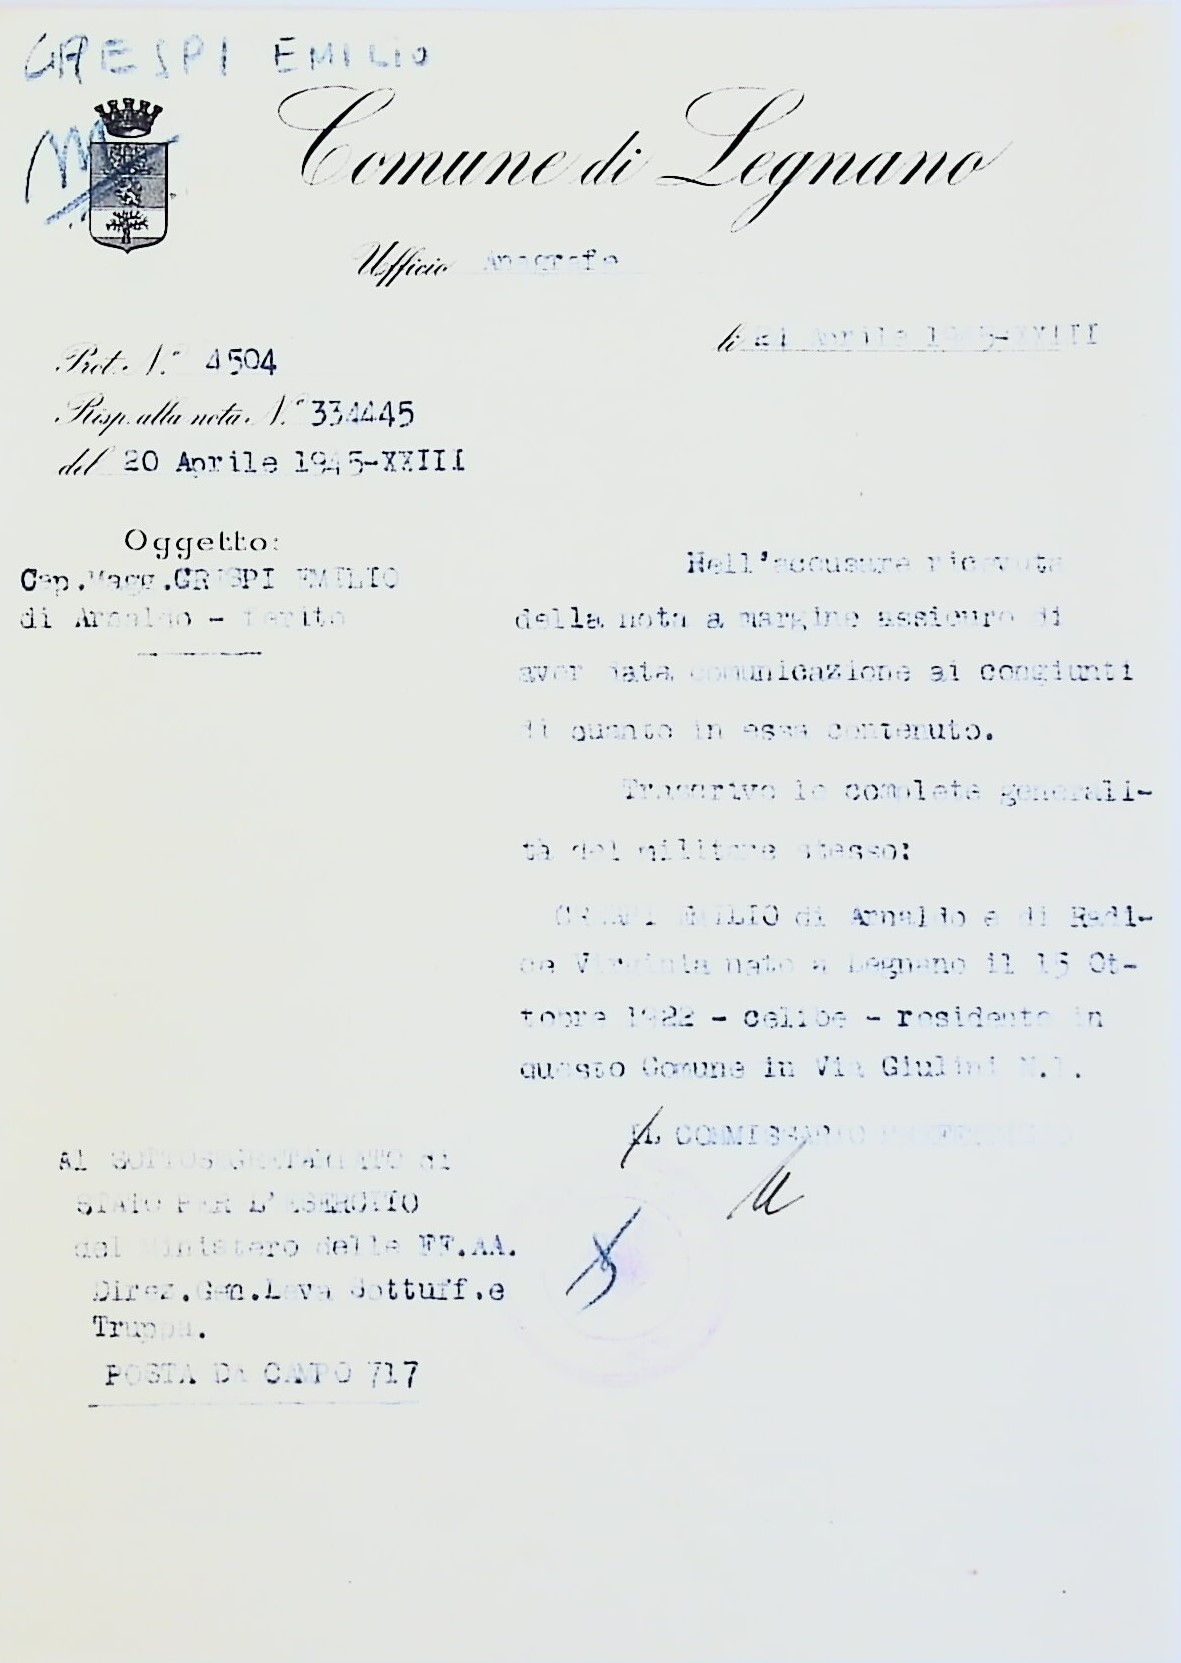 CRESPI EMILIO
Comune di Legnano
Ufficio Anagrafe
li 21 Aprile 1945-XXIII
Prot. N.° 4504
Risp. alla nota N.° 334445
del 20 Aprile 1945-XXIII
Oggetto:
Cap.Magg.CRESPI EMILIO
di Arnaldo - ferito
Nell'accusare ricevuta
della nota a margine assicuro di
aver data comunicazione ai congiunti
di quanto in essa contenuto.
Trascrivo le complete generali-
tà del militare stesso:
CRESPI EMILIO di Arnaldo e di Radi-
ce Virginia nato a Legnano il 15 Ot-
tobre 1922 - celibe - residente in
questo Comune in Via Giulini N.1.
IL COMMISSARIO PREFETTIZIO
Al SOTTOSEGRETARIATO di
STATO PER L'ESERCITO
del Ministero delle FF.AA.
Direz.Gen.Leva Sottuff.e
Truppa.
POSTA DA CAMPO 717